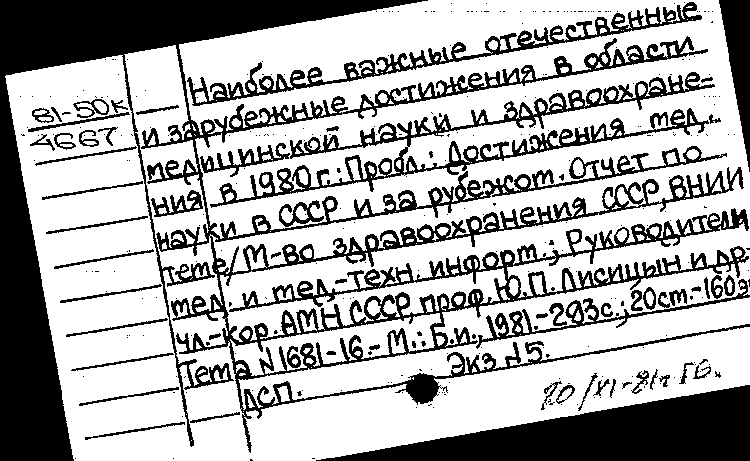 81-50к
4667
Наиболее важные отечественные
и зарубежные достижения в области
медицинской науки и здравоохране=
ния в 1980 г.: Пробл.: Достижения мед..
науки в СССР и за рубежом. Отчет по
теме/М-во здравоохранения СССР, ВНИИ
мед. и мед.-техн. информ.; Руководители
чл.-кор. АМН СССР, проф. Ю.П. Лисицын и др.
Тема N 1681-16.- М.: Б.и., 1981.-293с.; 20см.-160э
ДСП. Экз N 5.
20/XI-81г ГБ.